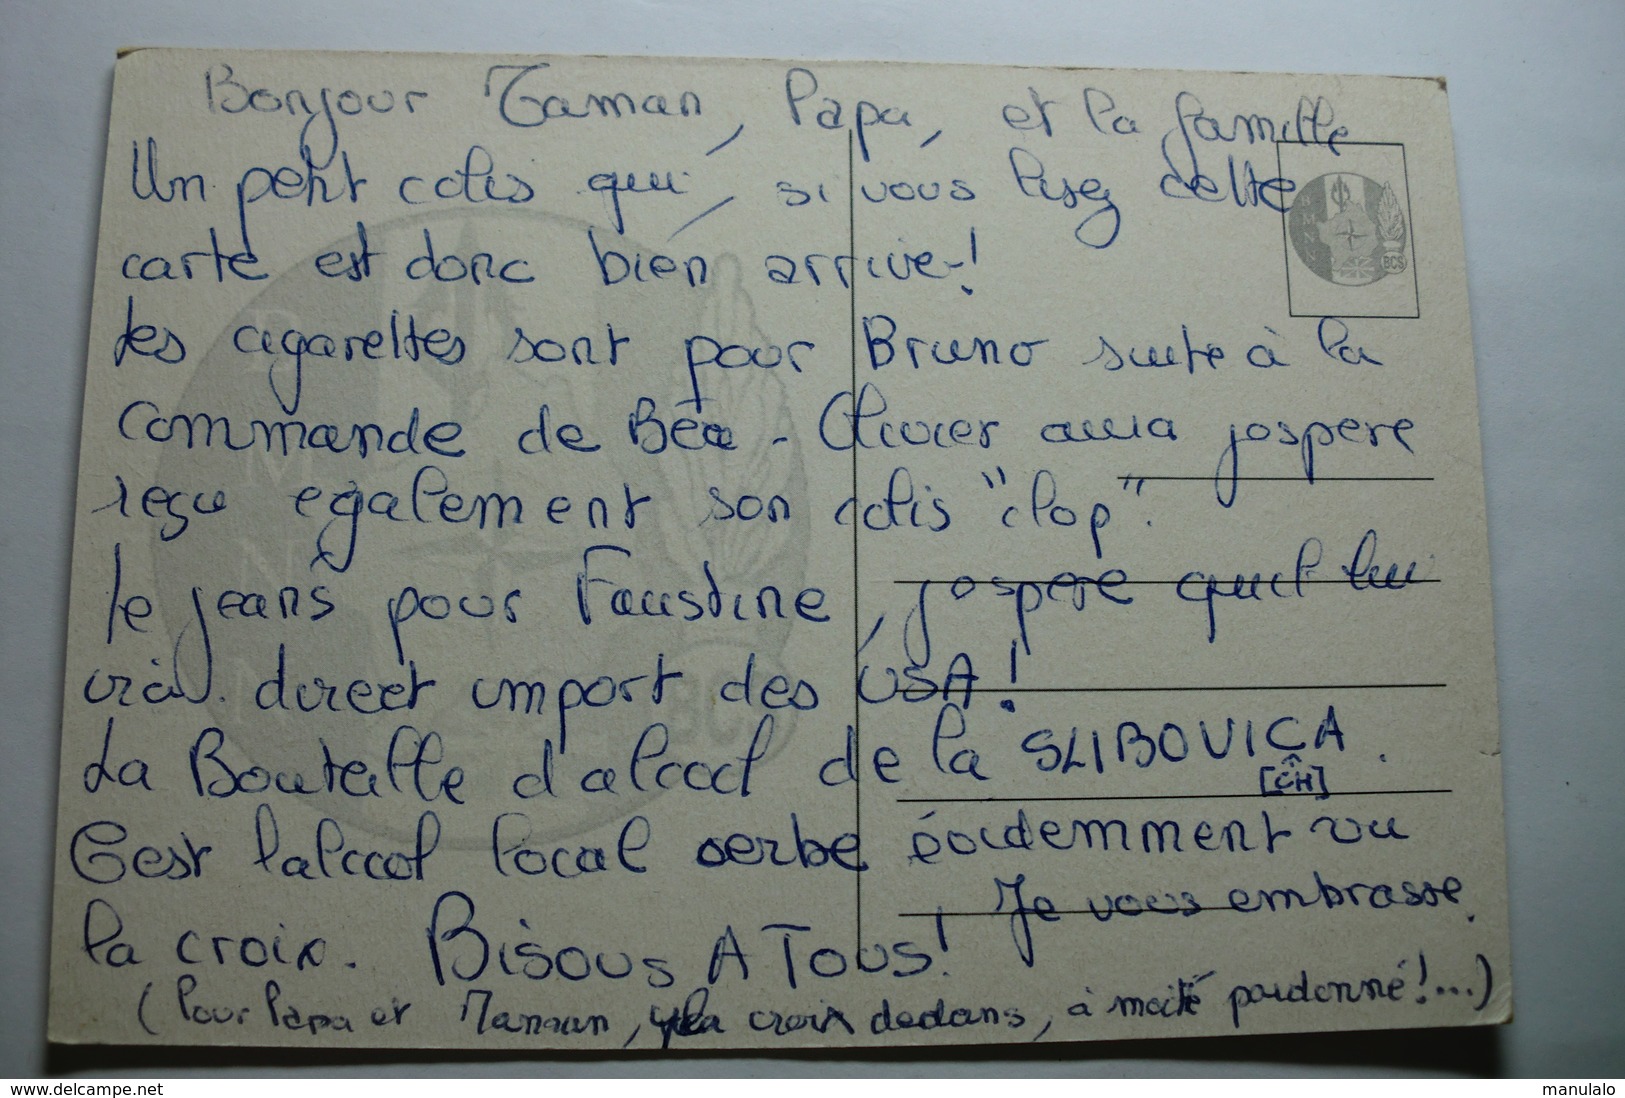 Bonjour Maman, Papa, et la famille
Un petit colis qui, si vous lisez cette
carte est donc bien arrivé!
Les cigarettes sont pour Bruno suite à la
commande de Béa - Olivier aura jospere
reçu également son colis "clop".
Le jeans pour Faustine, jospere quil lui
ira. direct import des USA!
La Bouteille d'alcool de la SLIBOVICA.
[CH]
Cest lalcool local serbe évidemment vu
la croix. Bisous A Tous! Je vous embrasse.
(Pour Papa et Maman, la croix dedans, à moitié pardonné!...)
BCS
delcampe.net
manulalo